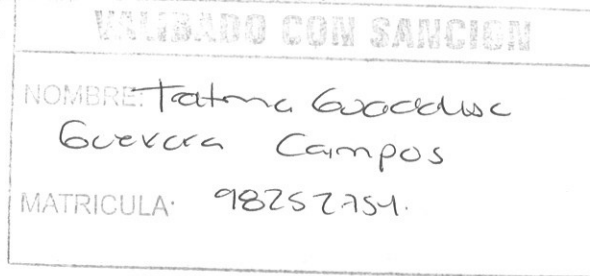 VALIDADO CON SANCION
NOMBRE: Fatima Guadalupe
Guevara Campos
MATRICULA: 98252754.